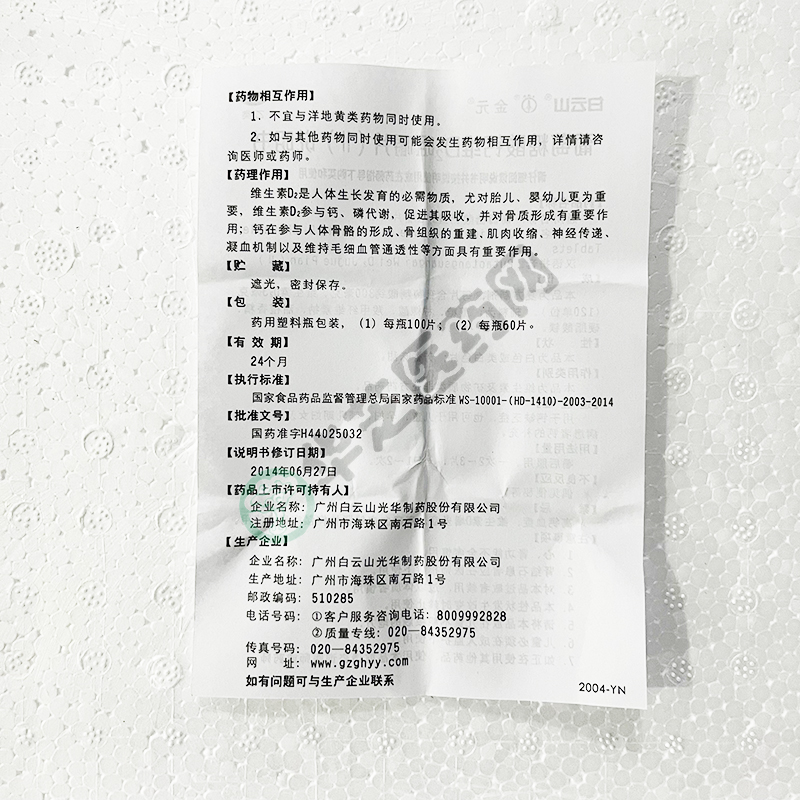 【药物相互作用】
1. 不宜与洋地黄类药物同时使用。
2. 如与其他药物同时使用可能会发生药物相互作用，详情请咨
询医师或药师。
【药理作用】
维生素D₂是人体生长发育的必需物质，尤对胎儿、婴幼儿更为重
要，维生素D₂参与钙、磷代谢，促进其吸收，并对骨质形成有重要作
用；钙在参与人体骨骼的形成、骨组织的重建、肌肉收缩、神经传递、
凝血机制以及维持毛细血管通透性等方面具有重要作用。
【贮 藏】
遮光，密封保存。
【包 装】
药用塑料瓶包装，（1）每瓶100片；（2）每瓶60片。
【有 效 期】
24个月
【执行标准】
国家食品药品监督管理总局国家药品标准WS-10001-(HD-1410)-2003-2014
【批准文号】
国药准字H44025032
【说明书修订日期】
2014年06月27日
【药品上市许可持有人】
企业名称：广州白云山光华制药股份有限公司
注册地址：广州市海珠区南石路1号
【生产企业】
企业名称：广州白云山光华制药股份有限公司
生产地址：广州市海珠区南石路1号
邮政编码：510285
电话号码：①客户服务咨询电话：8009992828
②质量专线：020—84352975
传真号码：020—84352975
网 址：www.gzghyy.com
如有问题可与生产企业联系
2004-YN
华芝医药网
白云山 金元